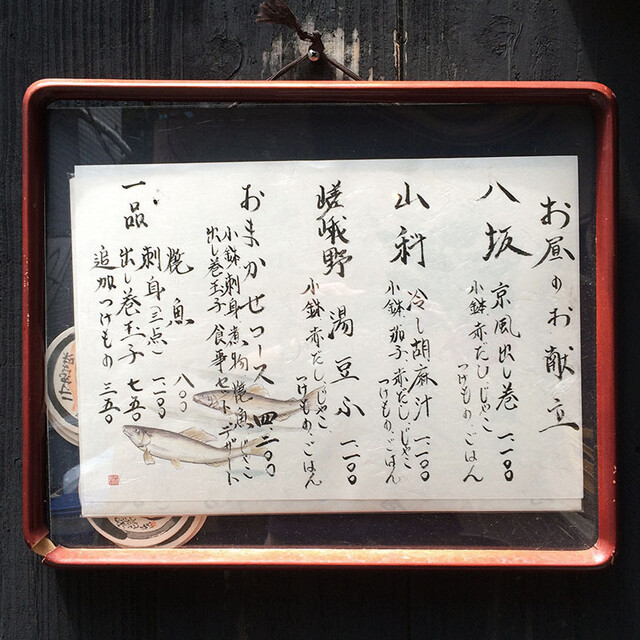 お昼のお献立
八坂 京風出し巻 一一〇〇
小鉢 赤だし、じゃこ
つけもの、ごはん
山科 冷し胡麻汁 一一〇〇
小鉢 茄子、赤だし、じゃこ
つけもの、ごはん
嵯峨野 湯豆ふ 一一〇〇
小鉢 赤だし、じゃこ
つけもの、ごはん
おまかせコース 四二〇〇
小鉢 刺身 煮物 焼魚 じゃこ
出し巻玉子 食事セット デザート
一品 焼魚 八〇〇
刺身(三点) 一一〇〇
出し巻玉子 七五〇
追加つけもの 三五〇